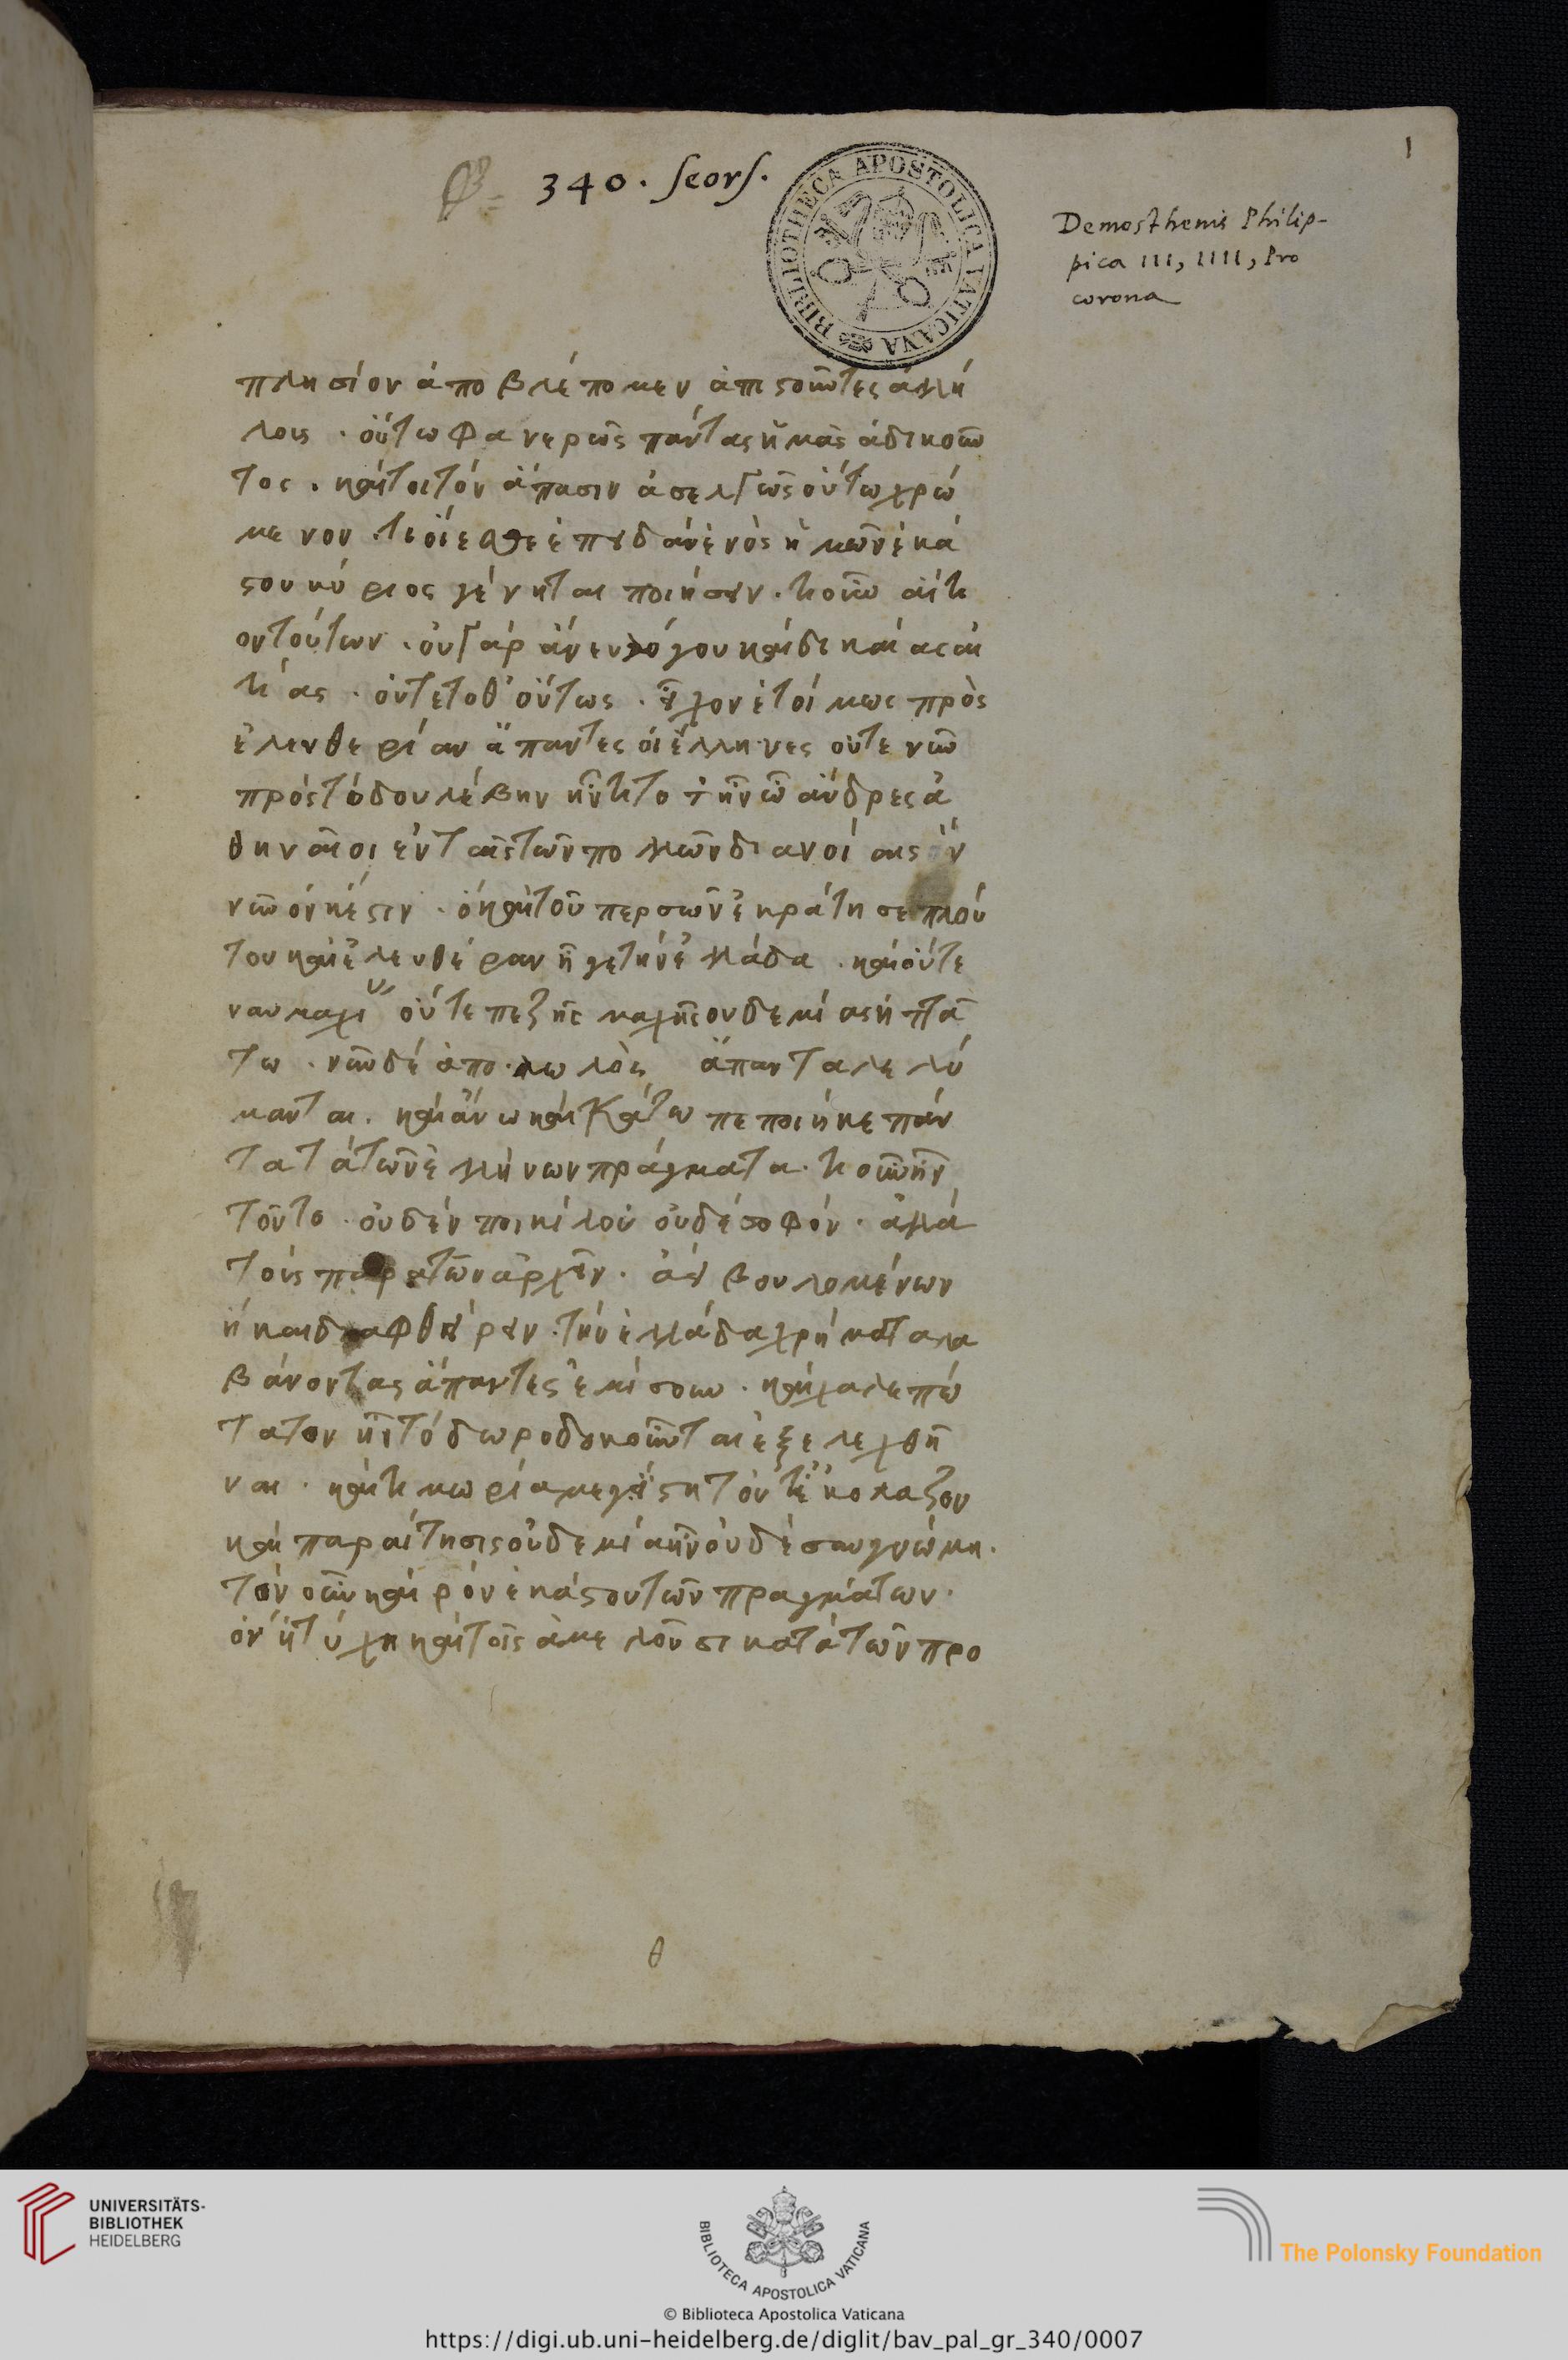 340. seors.
BIBLIOTHECA APOSTOLICA VATICANA
1
Demosthenis Philip-
pica III, IIII, Pro
corona
πλησίον ἀποβλέπομεν ἀπιστοῦντες ἀλλή
λοις · οὕτω φανερῶς πάντας ἡμᾶς ἀδικοῦν
τος · καίτοι τὸν ἅπασιν ἀσελγῶς οὕτω χρώ
μενον · τί οἴεσθε ἐπειδὰν ἑνὸς ἡμῶν ἑκά
στου κύριος γένηται ποιήσειν · τί οὖν αἴτι
ον τούτων · οὐ γὰρ ἄνευ λόγου καὶ δικαίας αἰ
τίας · οὔτε τόθ' οὕτως · εἶχον ἑτοίμως πρὸς
ἐλευθερίαν ἅπαντες οἱ ἕλληνες οὔτε νῦν
πρὸς τὸ δουλεύειν ἦν τι τότ' ἦν ὦ ἄνδρες ἀ
θηναῖοι ἐν ταῖς τῶν πολλῶν διανοίαις ὃ
νῦν οὐκ ἔστιν · ὃ καὶ τοῦ περσῶν ἐκράτησε πλού
του καὶ ἐλευθέραν ἦγε τὴν ἑλλάδα · καὶ οὔτε
ναυμαχι οὔτε πεζῆς μάχης οὐδεμίας ἡττᾶ
το · νῦν δὲ ἀπολωλὸς ἅπαντα λελύ
μανται · καὶ ἄνω καὶ κάτω πεποίηκε πάν
τα τὰ τῶν ἑλλήνων πράγματα · τί οὖν ἦν
τοῦτο · οὐδὲν ποικίλον οὐδὲ σοφόν · ἀλλὰ
τοὺς παρὰ τῶν ἄρχειν · ἀεὶ βουλομένων
ἢ καὶ διαφθείρειν · τὴν ἑλλάδα χρήματα λα
βάνοντας ἅπαντες ἐμίσουν · καὶ χαλεπώ
τατον ἦν τὸ δωροδοκοῦντα ἐξελεχθῆ
ναι · καὶ τιμωρία μεγίστη τοῦτον ἐκόλαζον
καὶ παραίτησις οὐδεμία ἦν οὐδὲ συγγνώμη ·
τὸν οὖν καιρὸν ἑκάστου τῶν πραγμάτων ·
ὃν ἡ τύχη καὶ τοῖς ἀμελοῦσι κατὰ τῶν προ
θ
UNIVERSITÄTS-
BIBLIOTHEK
HEIDELBERG
BIBLIOTECA APOSTOLICA VATICANA
The Polonsky Foundation
© Biblioteca Apostolica Vaticana
https://digi.ub.uni-heidelberg.de/diglit/bav_pal_gr_340/0007